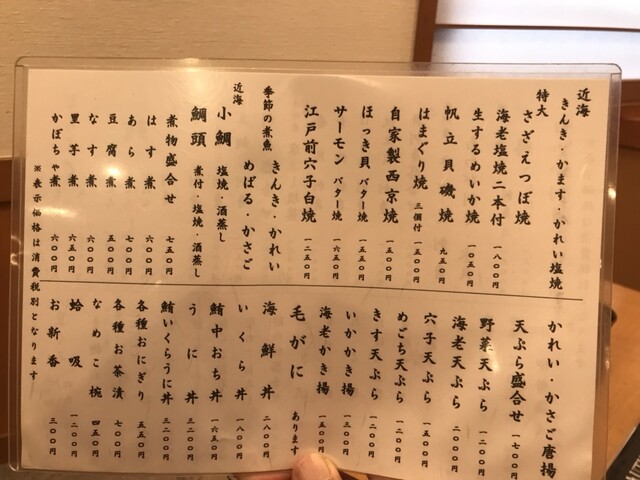 近海 きんき・かます・かれい塩焼
特大 さざえつぼ焼
海老塩焼二本付 一八〇〇円
生するめいか焼 一〇五〇円
帆立貝磯焼 九五〇円
はまぐり焼 三個付 一五〇〇円
自家製西京焼 一五五〇円
ほっき貝 バター焼 一五五〇円
サーモン バター焼 一六五〇円
江戸前穴子白焼 一二五〇円
季節の煮魚 きんき・かれい
めばる・かさご
近海 小鯛 塩焼・酒蒸し
鯛頭 煮付・塩焼・酒蒸し
煮物盛合せ 七五〇円
はす煮 六五〇円
あら煮 七〇〇円
豆腐煮 五〇〇円
なす煮 六〇〇円
里芋煮 六五〇円
かぼちゃ煮 六〇〇円
※表示価格は消費税別となります
かれい・かさご唐揚
天ぷら盛合せ 一七〇〇円
野菜天ぷら 一二〇〇円
海老天ぷら 二〇〇〇円
穴子天ぷら 一五〇〇円
めごち天ぷら 一二〇〇円
きす天ぷら 一二〇〇円
いかかき揚 一三〇〇円
海老かき揚 一五〇〇円
毛がに あります
海鮮丼 二八〇〇円
いくら丼 一八〇〇円
鮪中おち丼 一六五〇円
うに丼 三二〇〇円
鮪いくらうに丼 三二〇〇円
各種おにぎり 五五〇円
各種お茶漬 七〇〇円
なめこ椀 四五〇円
蛤吸 一二〇〇円
お新香 三〇〇円